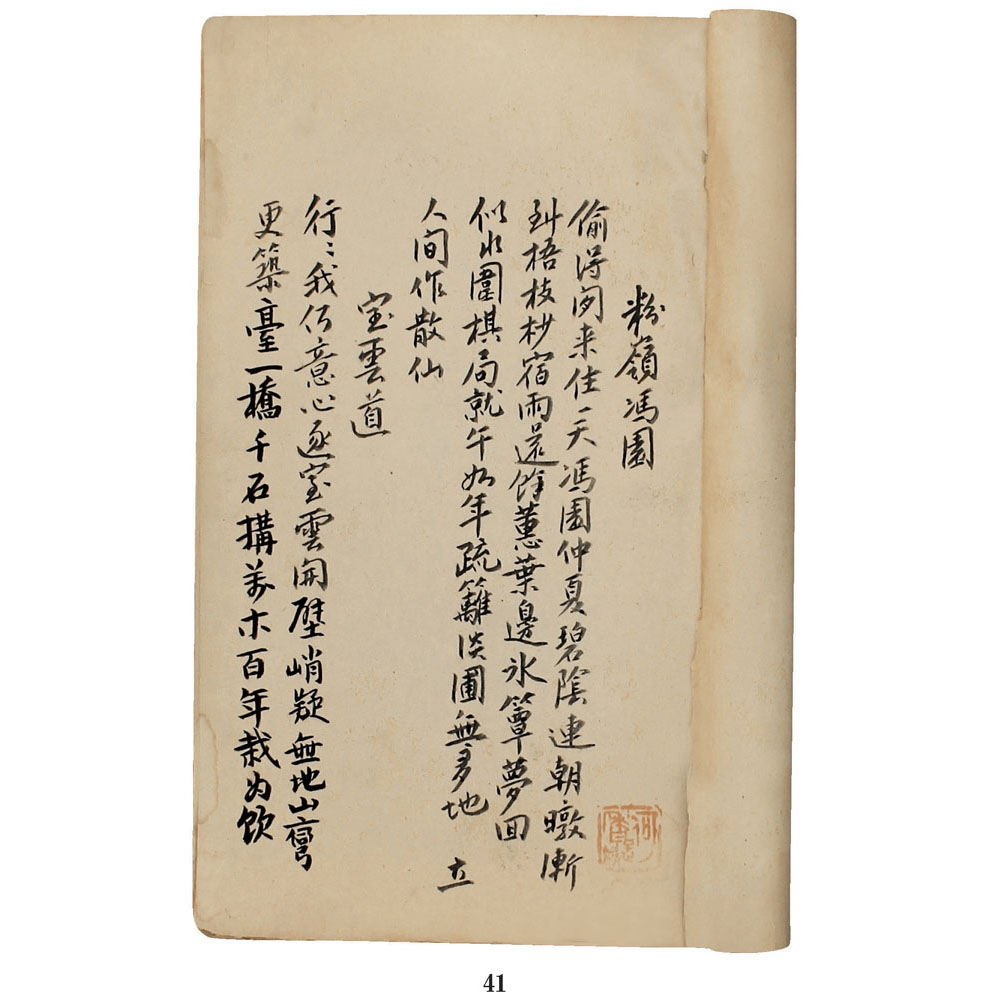 粉嶺馮園
偷得閑来住一天馮園仲夏碧陰連朝暾漸
到梧枝杪宿雨還餘蕙葉邊冰簟夢回
似水圍棋局就午如年疏籬淡圃無多地
人間作散仙
立
宝雲道
行〻我何意心逐宝雲開壁峭疑無地山彎
更築臺一橋千石構萬木百年栽为飲
41